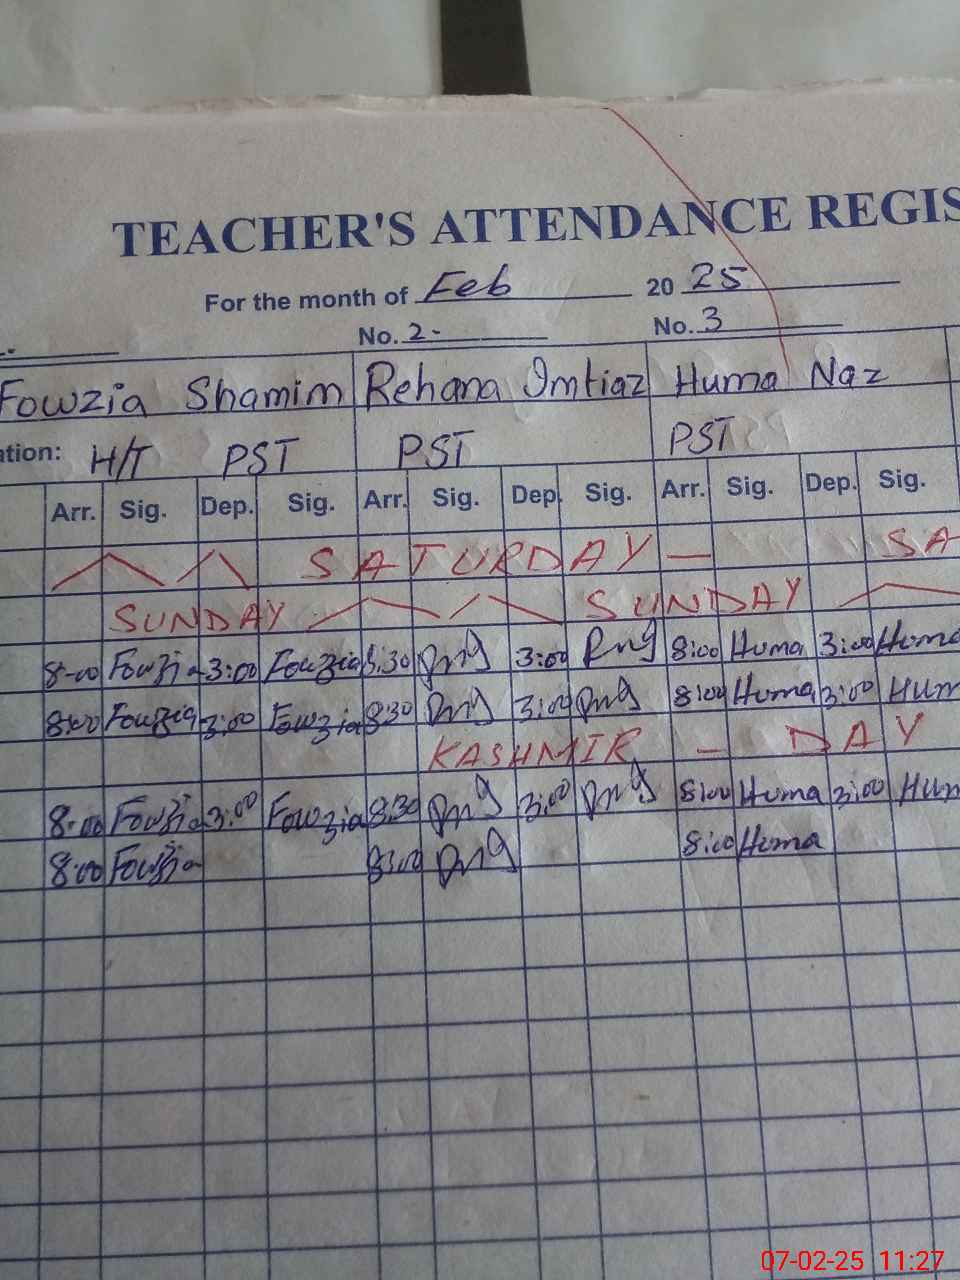 TEACHER'S ATTENDANCE REGIS
For the month of Feb 20 25
No. 2. No. 3
Fowzia Shamim Rehana Imtiaz Huma Naz
ation: H/T PST PST PST
Arr. Sig. Dep. Sig. Arr. Sig. Dep. Sig. Arr. Sig. Dep. Sig.
SATURDAY SA
SUNDAY SUNDAY
8:00 Fowzia 3:00 Fowzia 8:30 3:00 8:00 Huma 3:00 Huma
8:00 Fowzia 3:00 Fowzia 8:30 3:00 8:00 Huma 3:00 Hum
KASHMIR - DAY
8:00 Fowzia 3:00 Fowzia 8:30 3:00 8:00 Huma 3:00 Hum
8:00 Fowzia 8:00 Huma
07-02-25 11:27